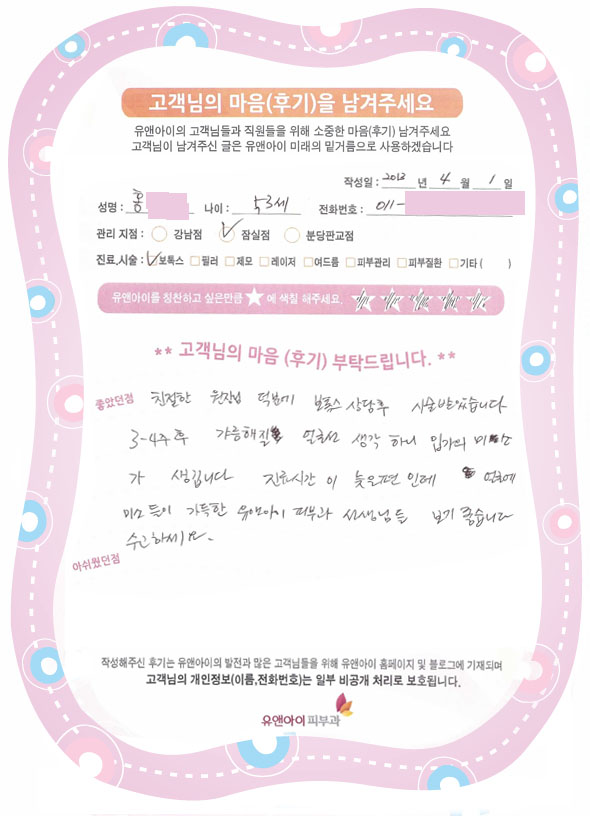 고객님의 마음(후기)을 남겨주세요
유앤아이의 고객님들과 직원들을 위해 소중한 마음(후기) 남겨주세요
고객님이 남겨주신 글은 유앤아이 미래의 밑거름으로 사용하겠습니다
작성일 : 2013 년 4 월 1 일
성명 : 홍 나이 : 53세 전화번호 : 011-
관리 지점 : 강남점 잠실점 분당판교점
진료.시술 : 보톡스 필러 제모 레이저 여드름 피부관리 피부질환 기타 ( )
유앤아이를 칭찬하고 싶은만큼 ★ 에 색칠 해주세요. ★★★★★
** 고객님의 마음 (후기) 부탁드립니다. **
좋았던점 친절한 원장님 덕분에 보톡스 상담후 시술받았습니다
3-4주후 갸름해질 얼굴선 생각 하니 입가의 미소
가 생깁니다 진료시간 이 늦은편 인데 얼굴에
미소 들이 가득한 유앤아이 피부과 선생님들 보기 좋습니다
수고하세요.
아쉬웠던점
작성해주신 후기는 유앤아이의 발전과 많은 고객님들을 위해 유앤아이 홈페이지 및 블로그에 기재되며
고객님의 개인정보(이름,전화번호)는 일부 비공개 처리로 보호됩니다.
유앤아이 피부과